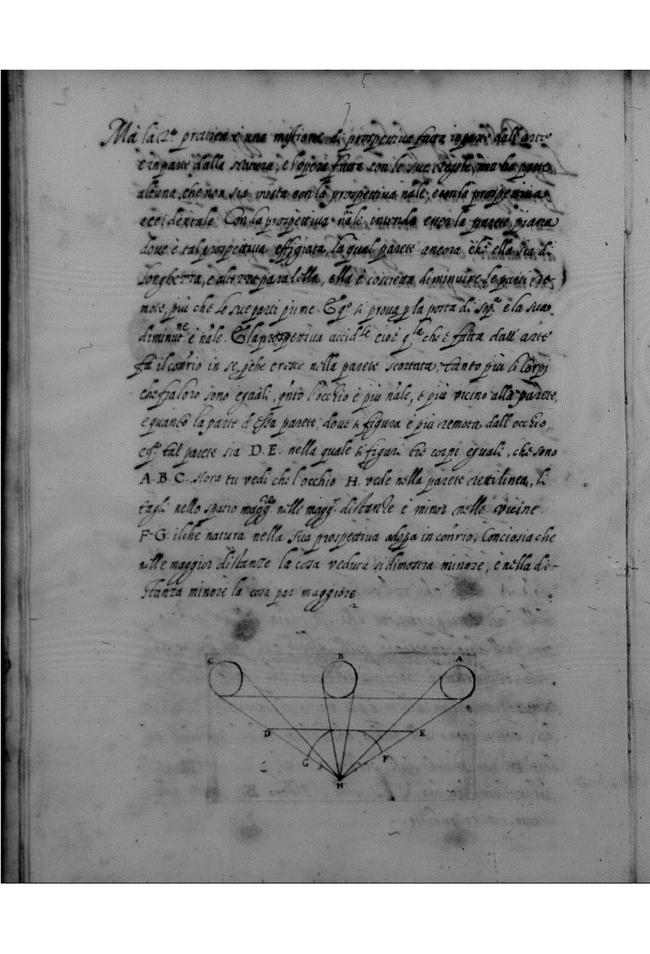 Mà la 2.ª pratica è una mistione di prospettiva fatta in parte dall'arte
e in parte dalla natura, e l'opera fatta con le sue regole, non ha parte
alcuna, che non sia mista con la prospettiva n̄ale, e con la prospettiva
accidentale. Con la prospettiva n̄ale, intendo esser la parete piana
dove è tal prospettiva effigiata, la qual parete ancora ch'ella sia di
longhezza, e altezza paralella, ella è costretta diminuire le parti re-
mote, più che le sue parti prime. E q.º si prova p la porta di sop.ª e la sua
diminut.ne è n̄ale. E la prospettiva accid.le cioè q.la che è fatta dall'arte
fà il con̄rio in se, p̄che cresce nella parete scortata, tanto più li Corpi
che fra loro sono eguali, qn̄to l'occhio è più n̄ale, e più vicino alla parete,
e quanto la parte d'essa parete, dove si figura è più remota dall'occhio,
e q.ª tal parete sia D. E. nella quale si figuri trè corpi eguali, che sono
A. B. C. Hora tu vedi che l'occhio H. vede nella parete rettilinea, li
tagli nello spatio magg.re nelle magg.ri distanze e minor nelle vicine
F. G. il che natura nella sua prospettiva adopra in con̄rio, Conciosia che
nelle maggior distanze la cosa veduta si dimostra minore, e nella di-
stanza minore la cosa par maggiore
C B A
D E
G F
H